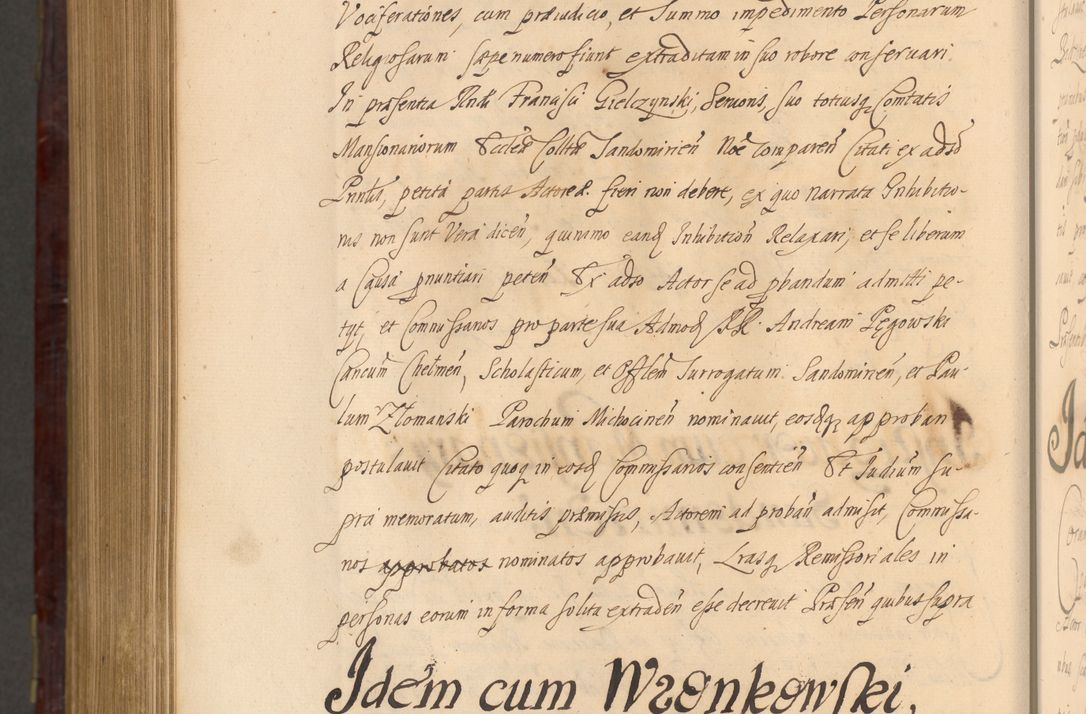 Vociferationes, cum præiudicio, et Summo impedimento Personarum
Religiosarum sæpenumero fiunt extraditam in suo robore conservari.
In præsentia Rndi Francisci Gielczynski, Senioris, suo totiusq Comtatis
Mansionariorum Eccłæ Collte Sandomirien Noe Comparen Citati ex adso
Pnntis, petita partis Actoreæ fieri non debere, ex quo narrata Inhibitio-
nis non sunt Veri dicen, quinimo eand Inhibition Relaxari, et se liberum
a Causa pnuntiari peten Et adso Actor se ad pbandum admitti pe-
tyt, et Commissarios pro parte sua Admod RR. Andream Pęgowski
Cancum Chełmen, Scholasticum, et Offłem Surrogatum Sandomirien, et Pau-
lum Złomanski Parochum Michocinen nominavit, eosdq approban
postulavit Citato quoq in eosd Commissarios consentien Et Judium su-
pra memoratum, auditis præmissis, Actorem ad proban admisit, Commissa-
rios approbatos nominatos approbavit, Lrasq Remissoriales in
personas eorum in forma solita extraden esse decrevit Præsen quibus supra
Idem cum Wronkowski,